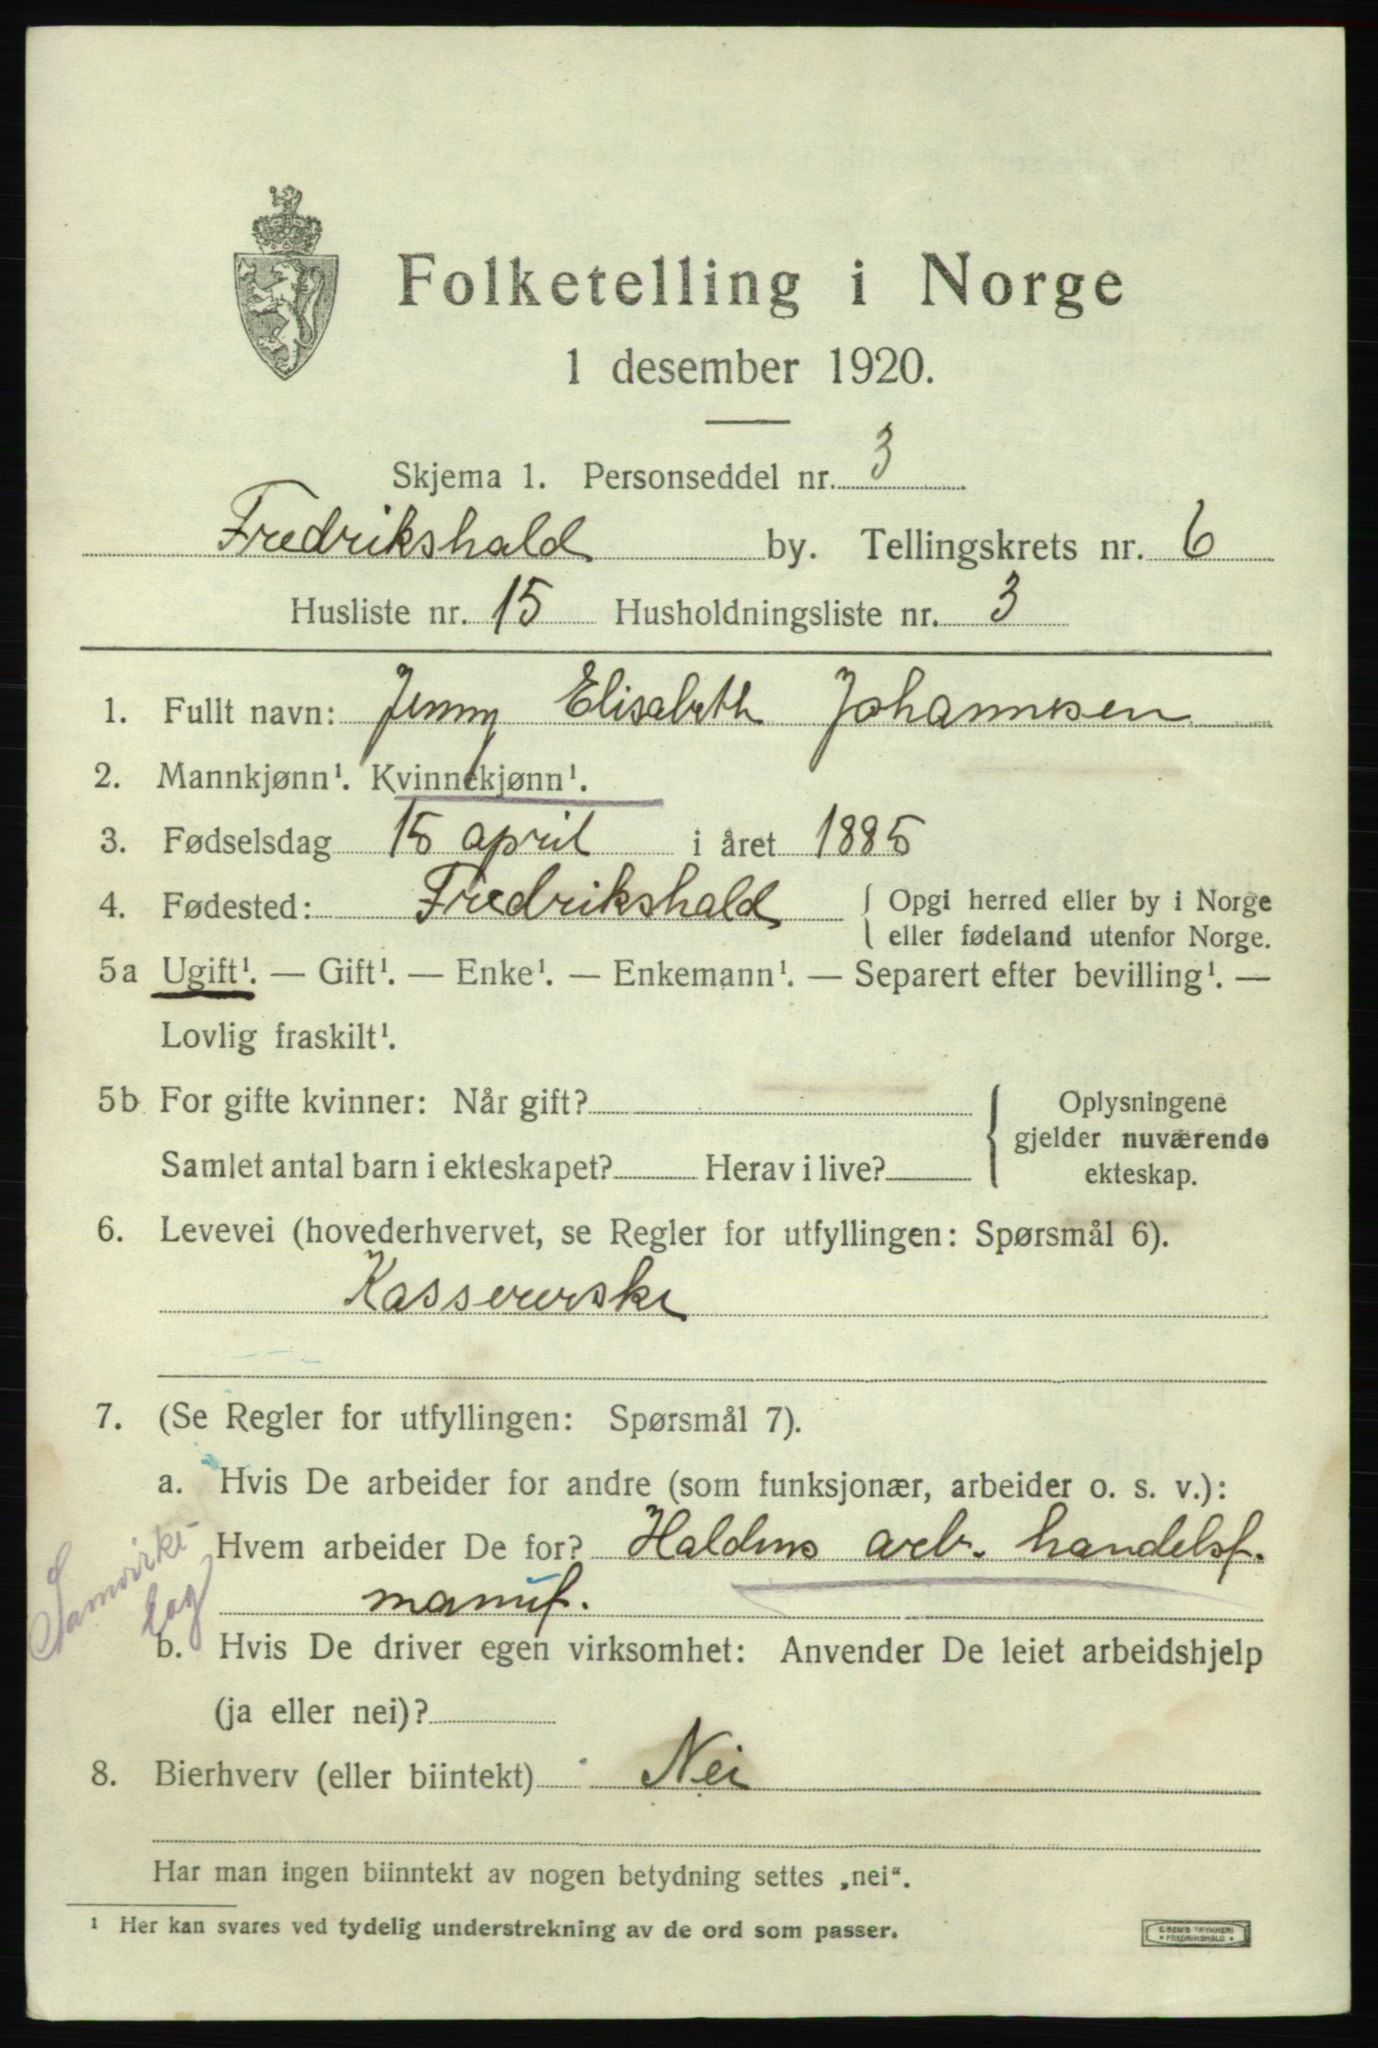 Folketelling i Norge
1 desember 1920.
Skjema 1. Personseddel nr. 3
Fredrikshald by. Tellingskrets nr. 6
Husliste nr. 15 Husholdningsliste nr. 3
1. Fullt navn: Jenny Elisabeth Johannesen
2. Mannkjønn¹. Kvinnekjønn¹.
3. Fødselsdag 15 april i året 1885
4. Fødested: Fredrikshald { Opgi herred eller by i Norge
eller fødeland utenfor Norge.
5a Ugift¹. — Gift¹. — Enke¹. — Enkemann¹. — Separert efter bevilling¹. —
Lovlig fraskilt¹.
5b For gifte kvinner: Når gift? { Oplysningene
gjelder nuværende
Samlet antal barn i ekteskapet? Herav i live? ekteskap.
6. Levevei (hovederhvervet, se Regler for utfyllingen: Spørsmål 6).
Kassererske
7. (Se Regler for utfyllingen: Spørsmål 7).
a. Hvis De arbeider for andre (som funksjonær, arbeider o. s. v.):
Hvem arbeider De for? Haldens arb. handelsf.
manuf.
Samvirke-
lag
b. Hvis De driver egen virksomhet: Anvender De leiet arbeidshjelp
(ja eller nei)?
8. Bierhverv (eller biintekt) Nei
Har man ingen biinntekt av nogen betydning settes „nei“.
¹ Her kan svares ved tydelig understrekning av de ord som passer.
TRYKKERI
FREDRIKSHALD